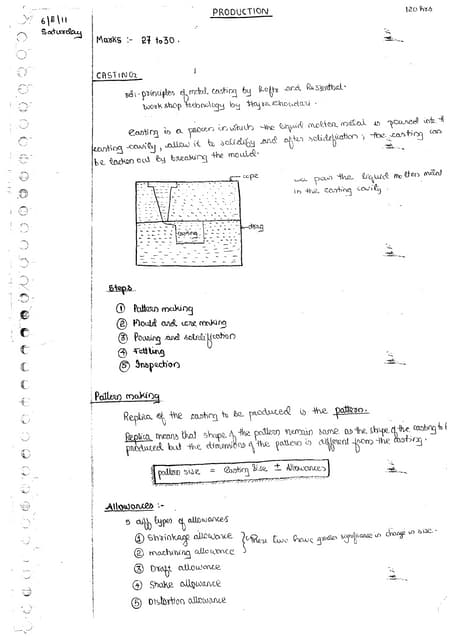 PRODUCTION
120 hrs
6/8/11
Saturday
Marks :- 27 to 30.
CASTING
principles of metal casting by and Rosenthal.
Workshop technology by Hajra Choudary.
Casting is a process in which the liquid molten metal is poured into the
casting cavity, allow it to solidify and after solidification, the casting can
be taken out by breaking the mould.
cope
we pour the liquid molten metal
in the casting cavity
drag
casting
Steps
① Pattern making
② Mould and core making
③ Pouring and solidification
④ Fettling
⑤ Inspection
Pattern making
Replica of the casting to be produced is the pattern.
Replica means that shape of the pattern remain same as the shape of the casting to be
produced but the dimensions of the pattern is different from the casting.
pattern size = Casting Size ± Allowances
Allowances :-
5 diff types of allowances
① Shrinkage allowance
② machining allowance
} These two have greater significance in change in size.
③ Draft allowance
④ Shake allowance
⑤ Distortion allowance